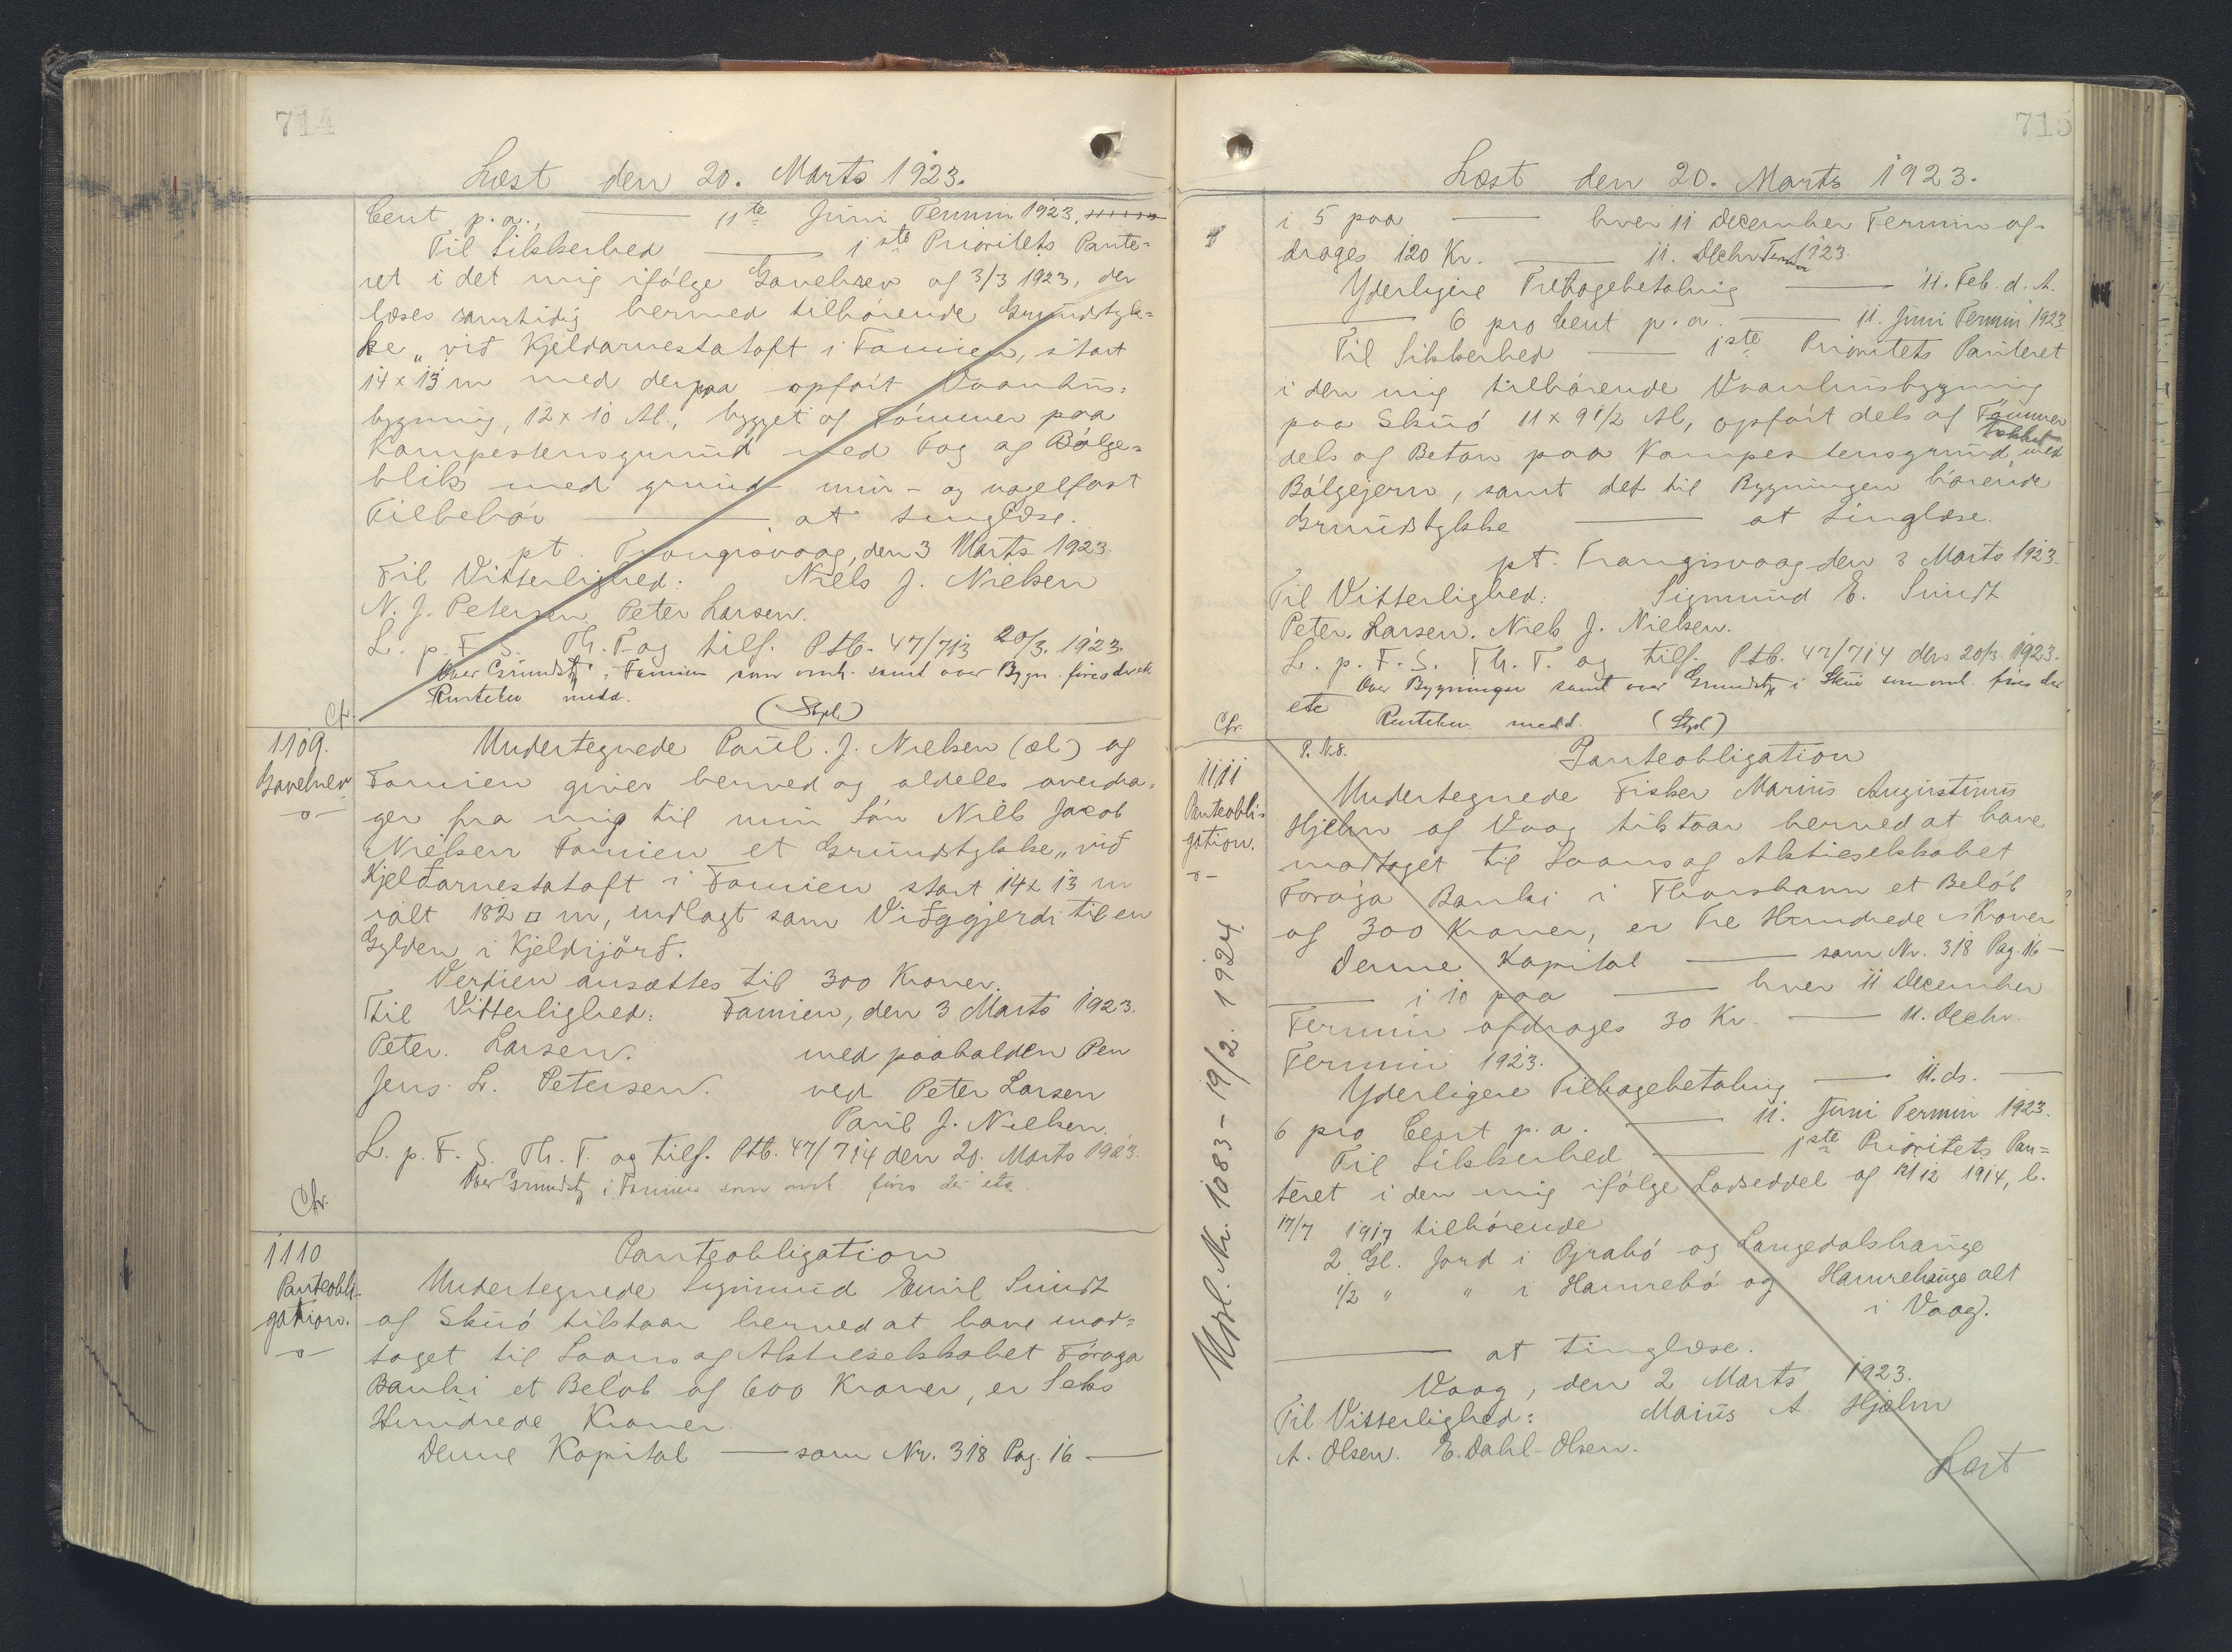 714
Læst den 20. Marts 1923.
Cent p.a., —— 11te Juni Termin 1923,
Til Sikkerhed —— 1ste Prioritets Pante=
ret i det mig ifølge Gavebrev af 3/3 1923, der
læses samtidig hermed tilhørende Grundstyk=
ke „við Kjeldarnestatoft i Famien, stort
14 x 13 m med derpaa opført Vaanhus=
bygning, 12 x 10 Al., bygget af Tömmer paa
Kampestensgrund med Tag af Bölge=
blik med grund mur- og nagelfast
Tilbehör —— at tinglæse.
pt. Trangisvaag, den 3 Marts 1923.
Til Vitterlighed: Niels J. Nielsen
N. J. Petersen Peter Larsen.
L. p. F. S. Th. T. og tilf. Ptb. 47/713 20/3. 1923.
Over Grundst. i Famien som omh. samt over Bygn. fires der etc
Rentebev medd. (Stpl)
Chr.
1109.
Gavebrev
-o-
Undertegnede Poul. J. Nielsen (æl) af
Famien giver herved og aldeles overdra=
ger fra mig til min Sön Niels Jacob
Nielsen Famien et Grundstykke „við
Kjeldarnestatoft i Famien stort 14 x 13 m
ialt 182 □ m, udlagt som Viðggjerdi til en
Gylden i Kjeldijörð.
Verdien ansættes til 300 Kroner.
Til Vitterlighed: Famien, den 3 Marts 1923.
Peter. Larsen. med paaholden Pen
Jens. L. Petersen. ved Peter Larsen
Paul J. Nielsen.
L. p. F. S. Th. T. og tilf. Ptb. 47/714 den 20. Marts 1923.
Over Grundst. i Famien som omh. fires der etc.
Chr.
1110
Panteobli-
gation.
-o-
Panteobligation
Undertegnede Sigmund Emil Lindt
af Skúö tilstaar herved at have mod=
taget til Laans af Aktieselskabet Föroya
Banki et Belöb af 600 Kroner, er Seks
Hundrede Kroner.
Denne Kapital —— som Nr. 318 Pag. 16 ——
715
Læst den 20. Marts 1923.
i 5 paa —— hver 11 December Termin af-
drages 120 Kr. —— 11. Decbr Termin 1923.
Yderligere Tilbagebetaling —— 11. Feb. d. A.
—— 6 pro Cent p. a. —— 11. Juni Termin 1923
Til Sikkerhed —— 1ste Prioritets Panteret
i den mig tilhörende Vaanhusbygning
paa Skúö 11 x 9 1/2 Al, opfört dels af Tömmer
dels af Beton paa Kampestensgrund, Tækket med
Bölgejern, samt det til Bygningen hörende
Grundstykke —— at tinglæse.
pt. Trangisvaag den 3 Marts 1923.
Til Vitterlighed: Sigmund E. Lindt
Peter. Larsen. Niels J. Nielsen.
L. p. F. S. Th. T. og tilf. Ptb. 47/714 den 20/3. 1923.
Over Bygningen samt over Grundst. i Skúö som omh. fires der
etc Rentebev. medd. (Stpl)
Chr.
1111
Panteobli-
gation.
-o-
P. N. 8. Panteobligation
Undertegnede Fisker Marius Augustinus
Hjelm af Vaag tilstaar herved at have
modtaget til Laans af Aktieselskabet
Föroya Banki i Thorshavn et Belöb
af 300 Kroner, er Tre Hundrede Kroner
Denne Kapital —— som Nr. 318 Pag. 16 —
—— i 10 paa —— hver 11 December
Termin afdrages 30 Kr. —— 11. Decbr.
Termin 1923.
Yderligere Tilbagebetaling —— 11. ds. ——
6 pro Cent p. a. —— 11. Juni Termin 1923.
Til Sikkerhed —— 1ste Prioritets Pan=
teret i den mig ifølge Lodseddel af 12 1914, l.
17/7 1917 tilhörende
2 Gl. Jord i Ryrabö og Langedalshauge
1/2 " " i Hamrebö og Hamrehauge alt
i Vaag.
—— at tinglæse.
Vaag, den 2 Marts 1923.
Til Vitterlighed: Marius A. Hjelm
A. Olsen. E. Dahl-Olsen.
Læst
Udsl. Nr. 1083 - 19/2. 1924